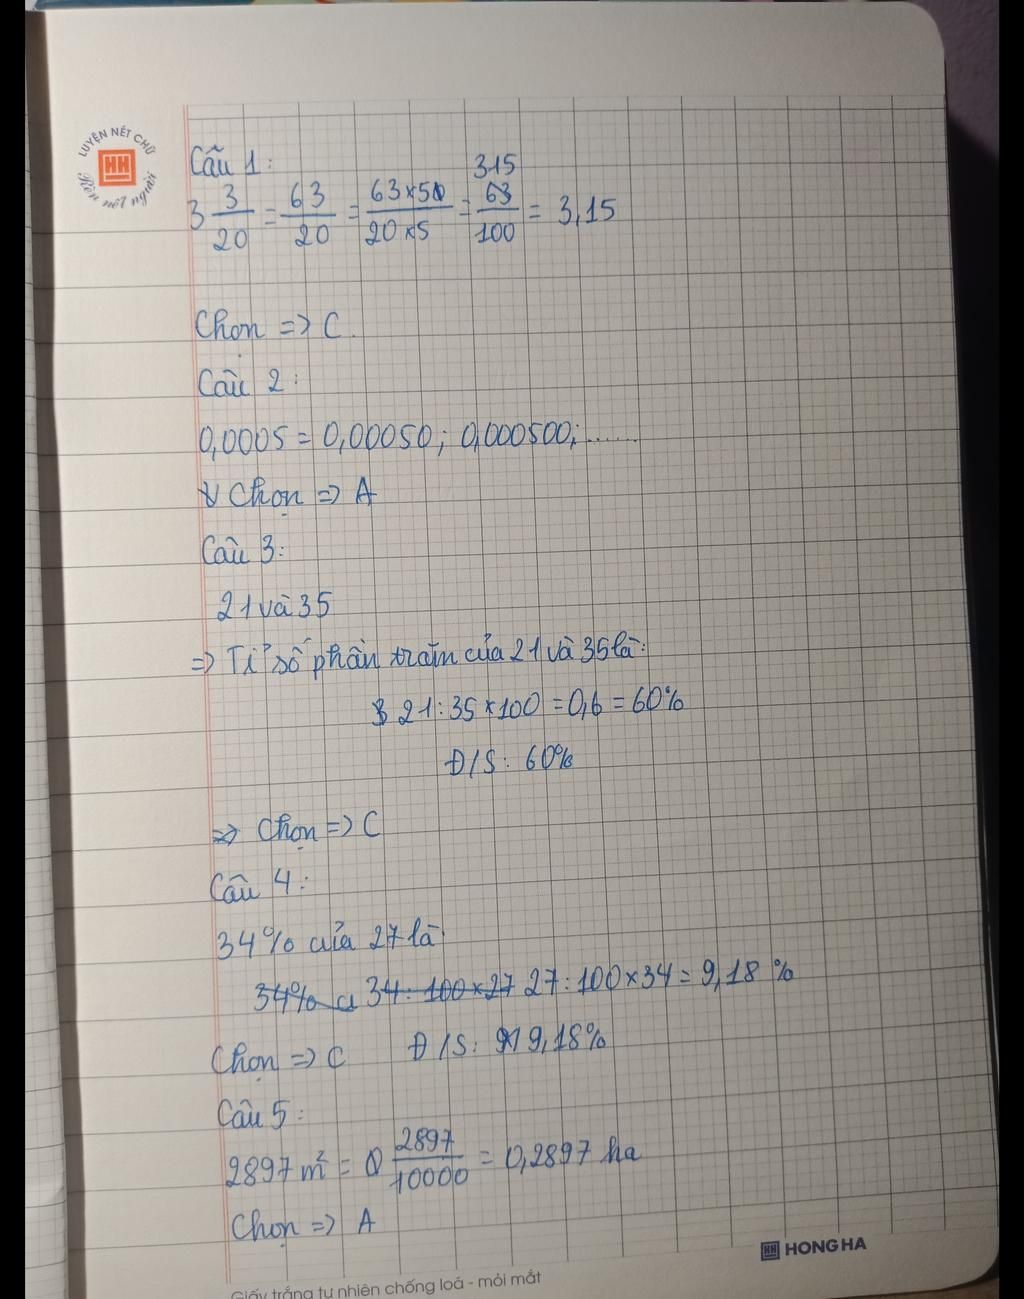 LUYỆN NÉT CHỮ
HH
Rèn nết người
Câu 1:
3 3/20 = 63/20 = 63×50/20×5 = 315 63/100 = 3,15
Chọn => C.
Câu 2:
0,0005 = 0,00050; 0,000500;......
Chọn => A
Câu 3:
21 và 35
=> Tỉ số phần trăm của 21 và 35 là:
21:35×100 = 0,6 = 60%
Đ/S: 60%
=> Chọn => C
Câu 4:
34% của 27 là
34% c 34:100×27 27:100×34 = 9,18 %
Chọn => C Đ/S: 9,18%
Câu 5:
2897 m² = 2897/10000 = 0,2897 ha
Chọn => A
HH HONG HA
Giấy trắng tự nhiên chống loá - mỏi mắt